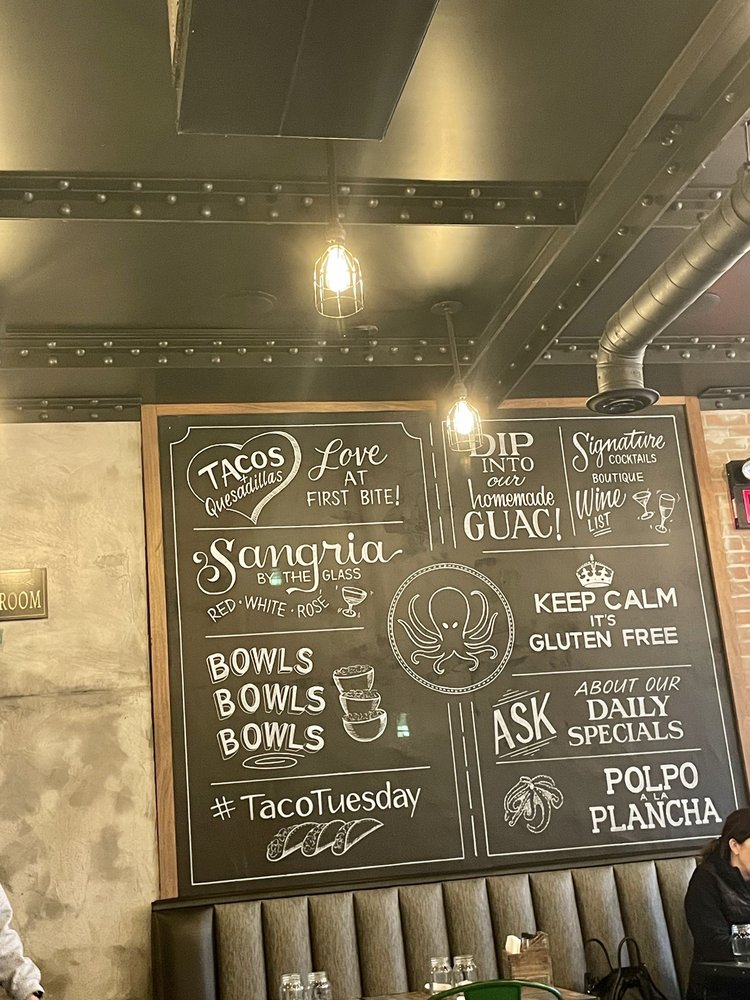 TACOS
+
Quesadillas
Love
AT
FIRST BITE!
Sangria
BY THE GLASS
RED · WHITE · ROSÉ
BOWLS
BOWLS
BOWLS
#TacoTuesday
DIP
INTO
our
homemade
GUAC!
Signature
COCKTAILS
BOUTIQUE
Wine
LIST
KEEP CALM
IT'S
GLUTEN FREE
ASK
ABOUT OUR
DAILY
SPECIALS
POLPO
A LA
PLANCHA
ROOM